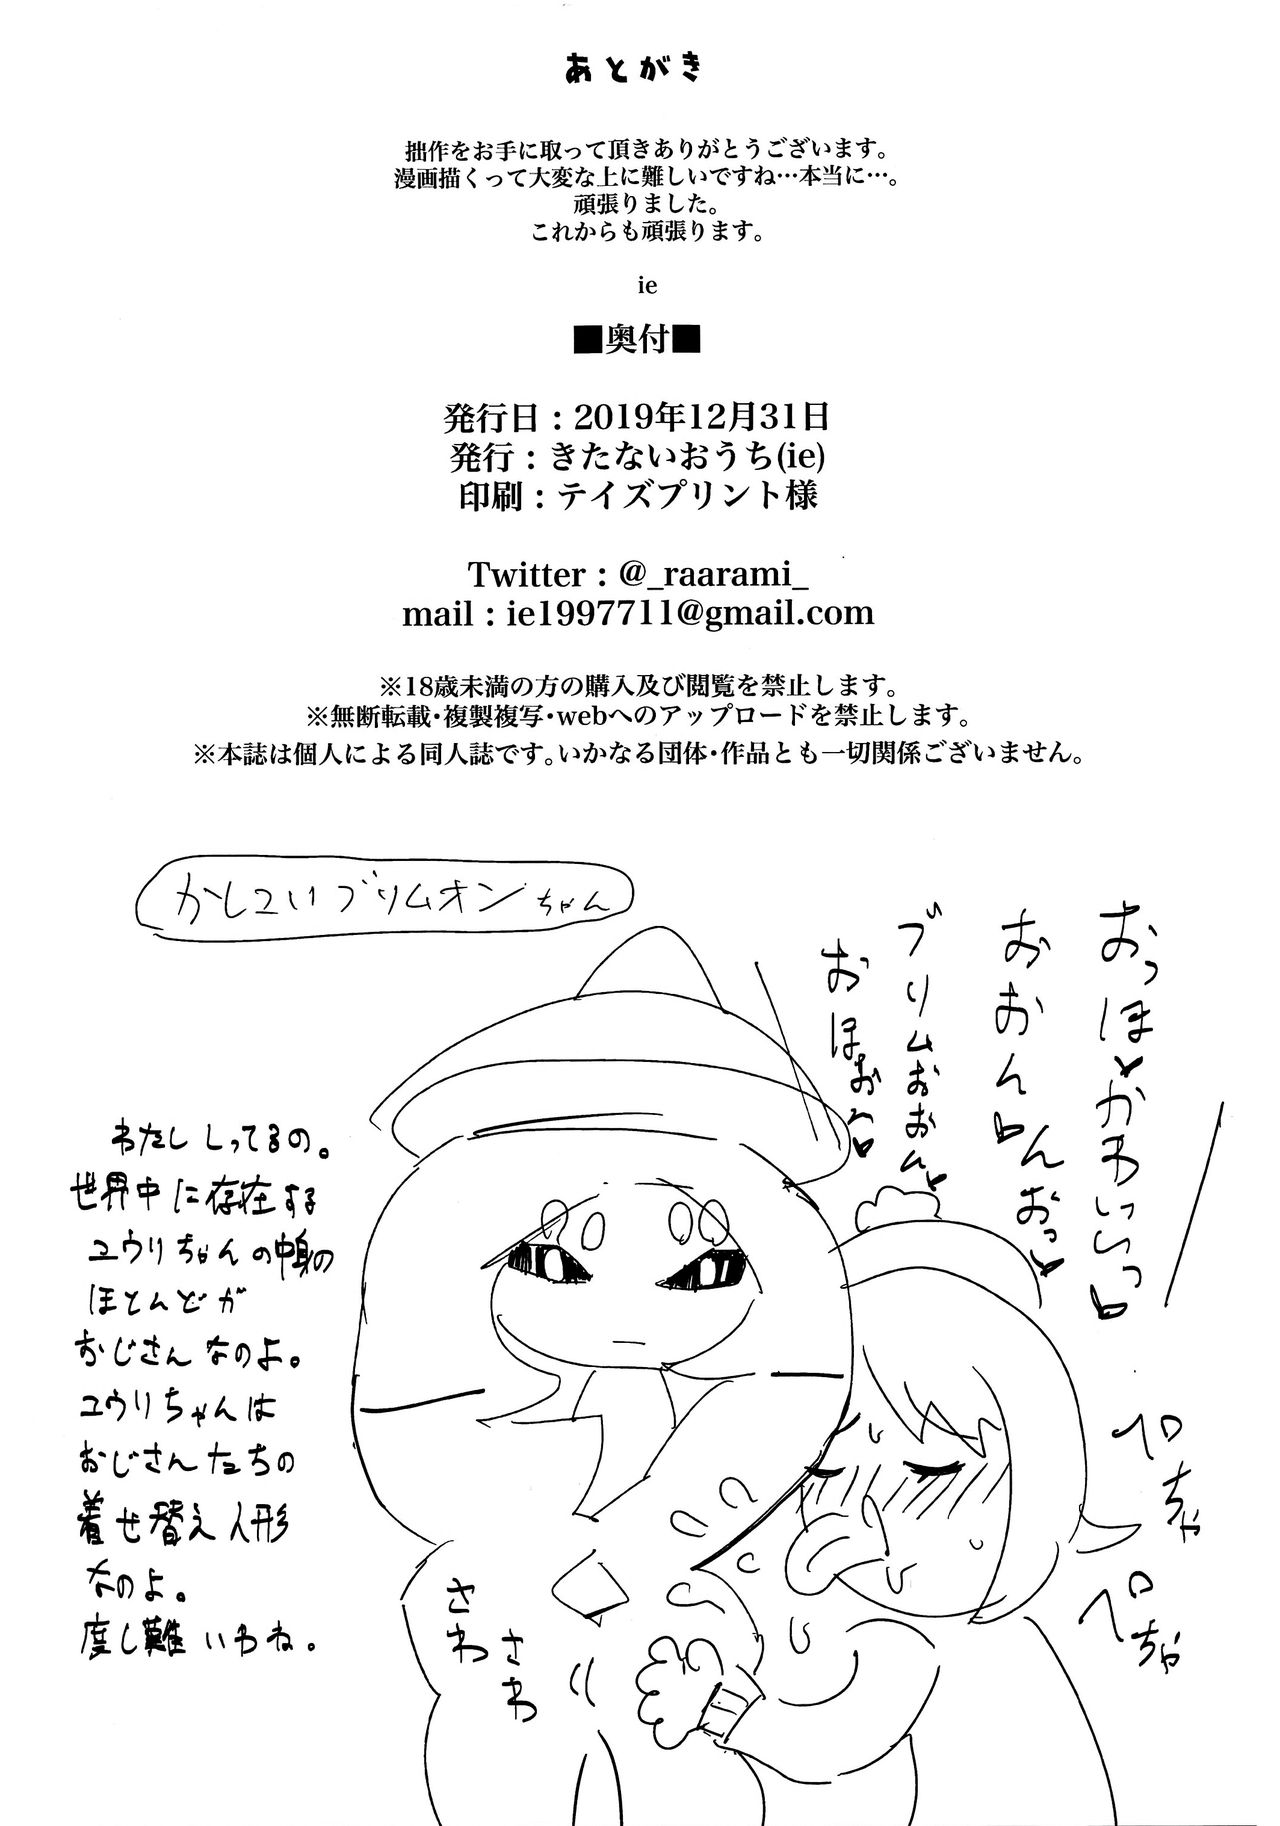 あとがき
拙作をお手に取って頂きありがとうございます。
漫画描くって大変な上に難しいですね…本当に…。
頑張りました。
これからも頑張ります。
ie
■奥付■
発行日：2019年12月31日
発行：きたないおうち(ie)
印刷：テイズプリント様
Twitter：@_raarami_
mail：ie1997711@gmail.com
※18歳未満の方の購入及び閲覧を禁止します。
※無断転載・複製複写・webへのアップロードを禁止します。
※本誌は個人による同人誌です。いかなる団体・作品とも一切関係ございません。
かしこいブリムオンちゃん
おっほ♥かわいいっいっ♥
おおん♥んおっ♥
ブリムおおん♥
おほぉ〜♥
わたししってるの。
世界中に存在する
ユウリちゃんの中身の
ほとんどが
おじさんなのよ。
ユウリちゃんは
おじさんたちの
着せ替え人形
なのよ。
度し難いわね。
ペロちゃ
ペロちゃ
さわ
さわ